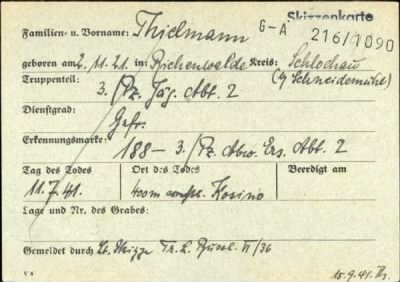 Skizzenkarte
Familien- u. Vorname: Thielmann G-A 216/1090
geboren am 2.11.21 in: Richenwalde Kreis: Schlochau
(b/Schneidemühl)
Truppenteil:
3./Pz. Jäg. Abt. 2
Dienstgrad:
Gefr.
Erkennungsmarke:
188 - 3./Pz. Abw. Ers. Abt. 2
Tag des Todes Ort des Todes Beerdigt am
11.7.41. 400m Kosino
Lage und Nr. des Grabes:
Gemeldet durch Lt. Skizze Tr. L. VI/36
V s 15.9.41.